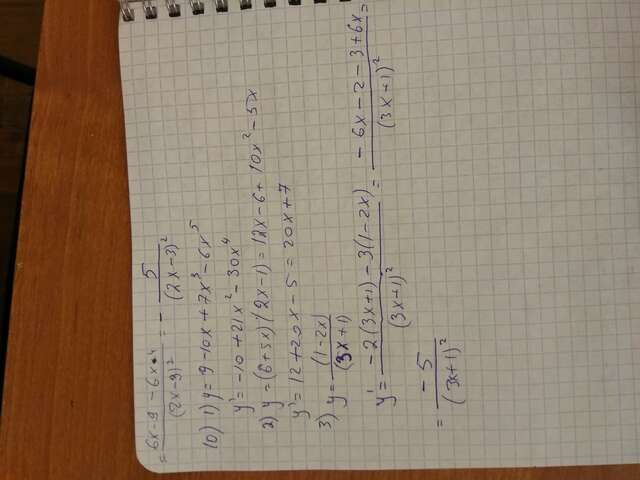 = (6x-9-6x+4)/(2x-9)² = - 5/(2x-3)²
10) 1) y = 9-10x+7x³-6x⁵
y' = -10+21x²-30x⁴
2) y = (6+5x)(2x-1) = 12x-6+10x²-5x
y' = 12+20x-5 = 20x+7
3) y = (1-2x)/(3x+1)
y' = (-2(3x+1)-3(1-2x))/(3x+1)² = (-6x-2-3+6x)/(3x+1)² =
= -5/(3x+1)²